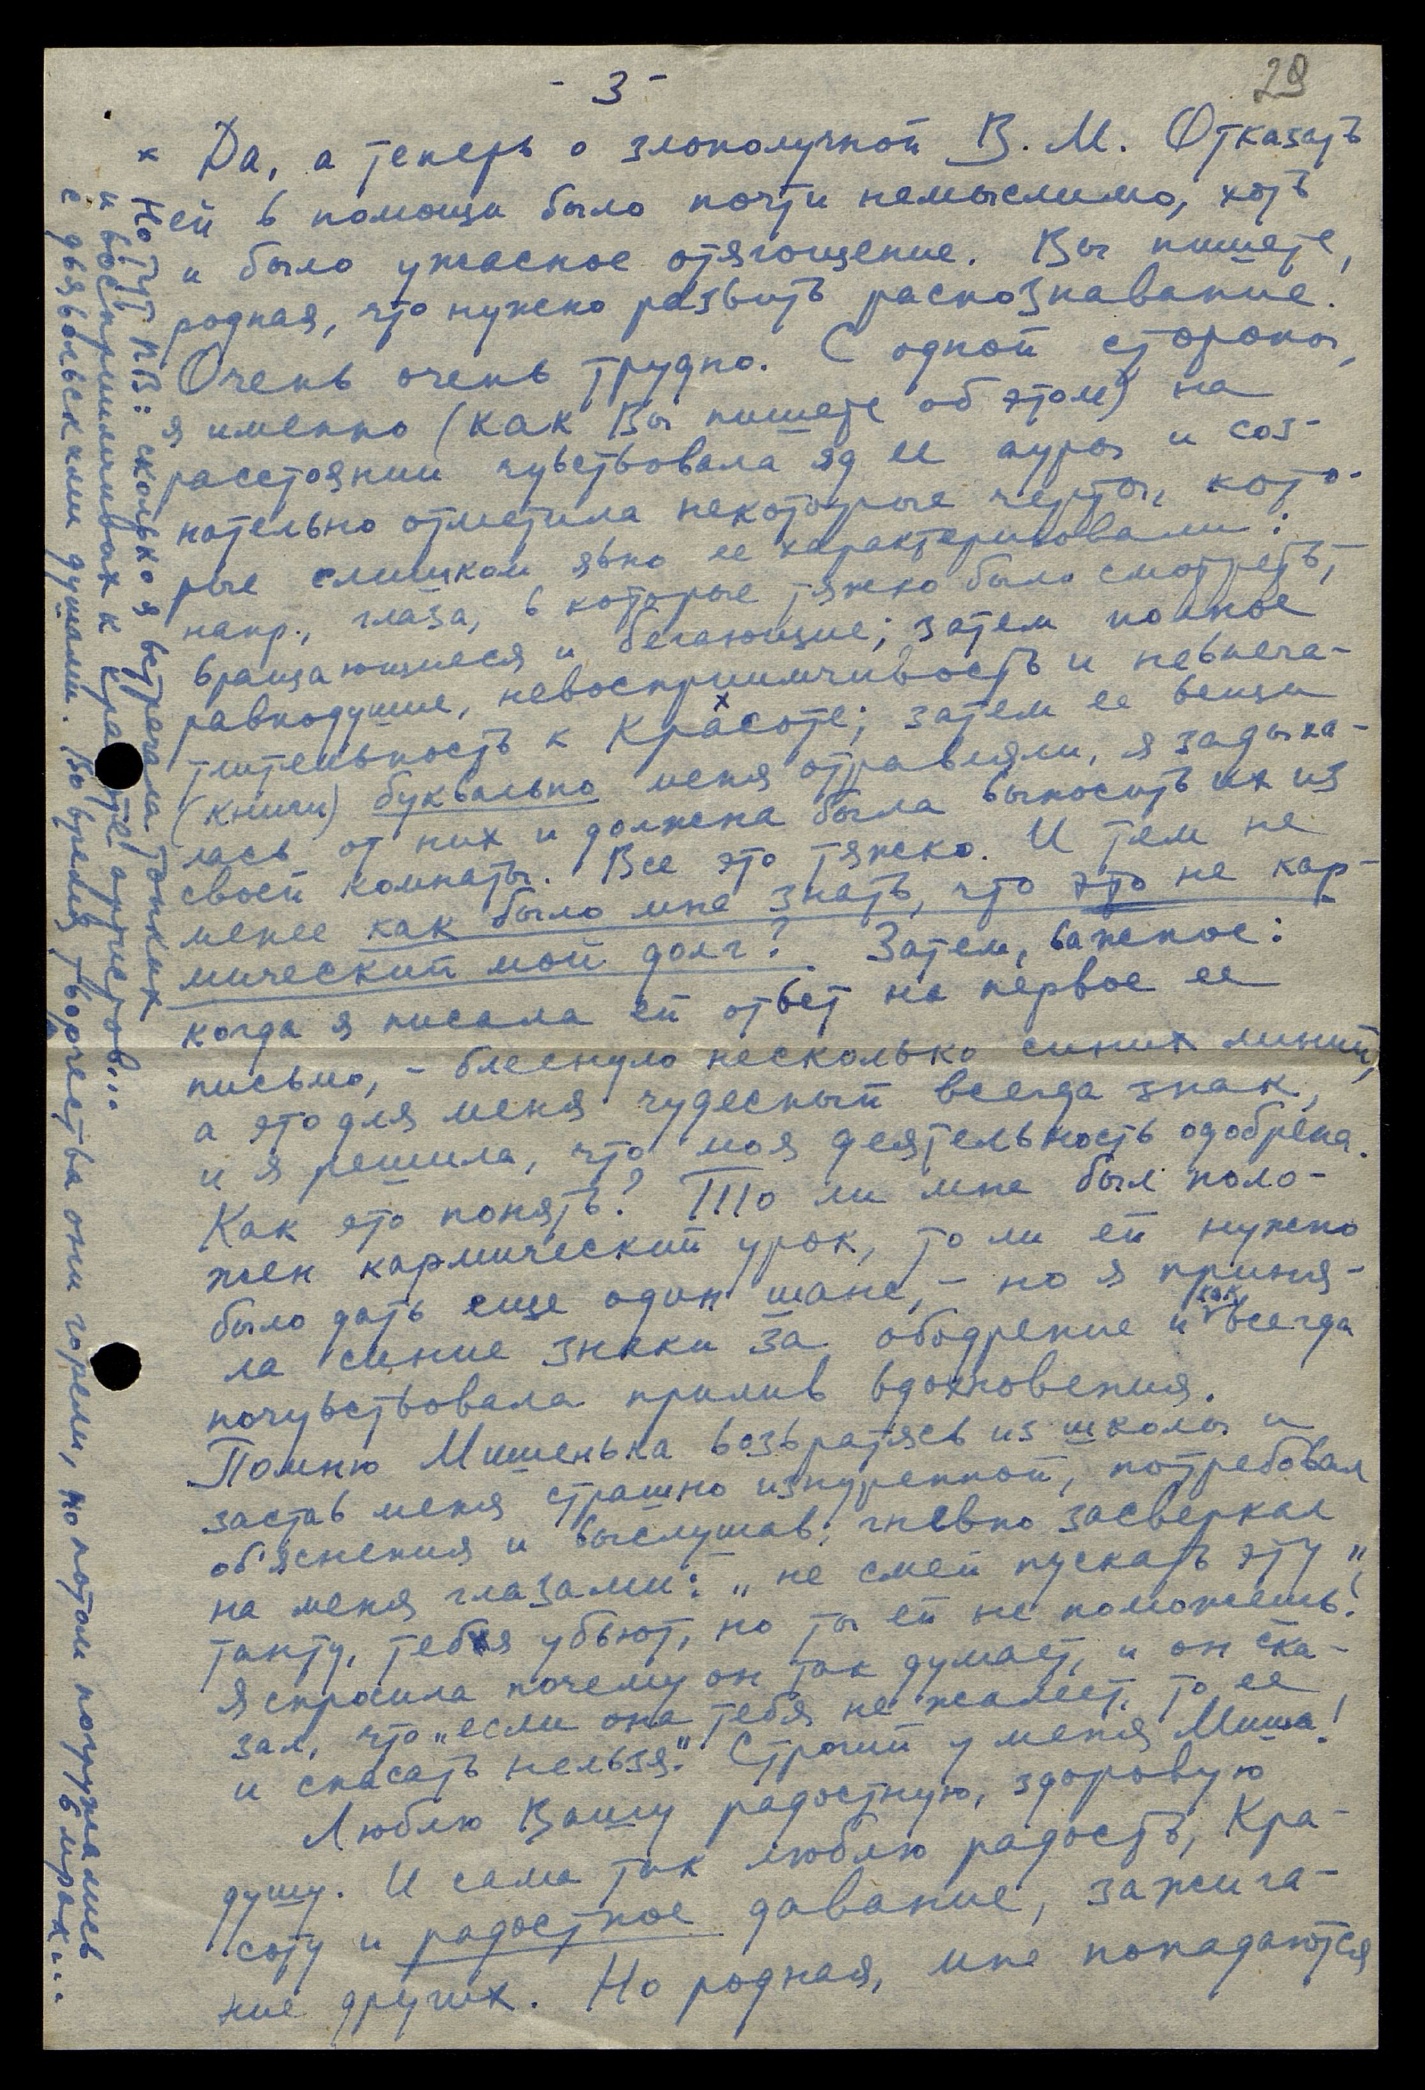 - 3 -
29
Да, а теперь о злополучной В. М. Отказать
ей в помощи было почти немыслимо, хоть
и было ужасное отягощение. Вы пишете,
родная, что нужно развить распознавание.
Очень очень трудно. С одной стороны,
я именно (как Вы пишете об этом) на
расстоянии чувствовала яд ее ауры и соз-
нательно отметила некоторые черты, кото-
рые слишком явно ее характеризовали:
напр., глаза, в которые тяжко было смотреть,
вращающиеся и бегающие; затем полное
равнодушие, невосприимчивость и невпеча-
тлительность к Красоте;ˣ затем ее вещи
(книги) буквально меня отравляли, я задыха-
лась от них и должна была выносить их из
своей комнаты. Все это тяжко. И тем не
менее как было мне знать, что это не кар-
мический мой долг? Затем, важное:
когда я писала ей ответ на первое ее
письмо, – блеснуло несколько синих линий,
а это для меня чудесный всегда знак,
и я решила, что моя деятельность одобрена.
Как это понять? То ли мне был поло-
жен кармический урок, то ли ей нужно
было дать еще один шанс, – но я приня-
ла синие знаки за ободрение и как всегда
почувствовала прилив вдохновения.
Помню Мишенька возвратясь из школы и
застав меня страшно изнуренной, потребовал
об'яснения и выслушав, гневно засверкал
на меня глазами: „не смей пускать эту
танту, тебя убьют, но ты ей не поможешь!"
Я спросила почему он так думает, и он ска-
зал, что „если она тебя не жалеет, то ее
и спасать нельзя." Строгий у меня Миша!
Люблю Вашу радостную, здоровую
душу. И сама так люблю радость, Кра-
соту и радостное давание, зажига-
ние других. Но родная, мне попадаются
х Но тут NB: сколько я встречала тонких
и восприимчивых к красоте артистов...
с дьявольскими душами. Во время творчества они горели, но потом погружались
в мрак...